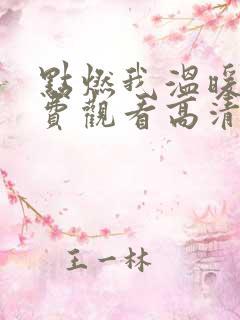 點燃我溫暖
費觀看高清
王一林